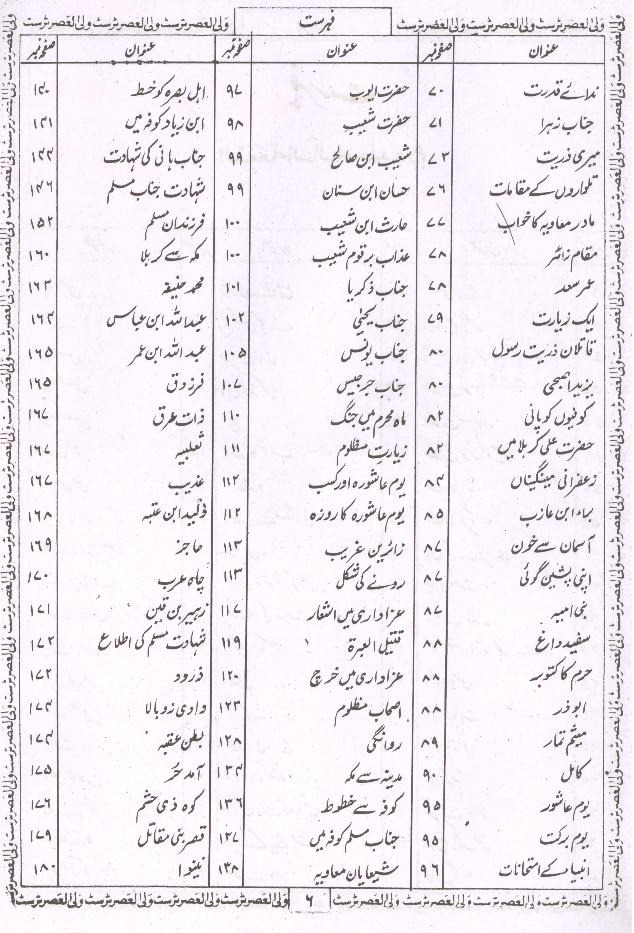 فہرست
عنوان صفحہ نمبر
ندائے قدرت ۷۰
جناب زہرا ۷۱
میری ذریت ۷۳
تلواروں کے مقامات ۷۶
مادر معاویہ کا خواب ۷۷
مقام زائر ۷۸
عمر سعد ۷۸
ایک زیارت ۷۹
قاتلان ذریت رسول ۸۰
یزید اصبحی ۸۰
کوفیوں کو پانی ۸۲
حضرت علی کربلا میں ۸۲
زعفرانی مینگنیاں ۸۴
براء ابن عازب ۸۵
آسمان سے خون ۸۷
اپنی پشین گوئی ۸۷
بنی امیہ ۸۷
سفید داغ ۸۸
حرم کا کتوبہ ۸۸
ابوذر ۸۸
میثم تمار ۸۹
کابل ۹۰
یوم عاشور ۹۵
یوم برکت ۹۵
انبیاء کے امتحانات ۹۶
عنوان صفحہ نمبر
حضرت ایوب ۹۷
حضرت شعیب ۹۸
شعیب ابن صالح ۹۹
حسان ابن سنان ۹۹
حارث ابن شعیب ۱۰۰
عذاب بر قوم شعیب ۱۰۰
جناب ذکریا ۱۰۱
جناب یحییٰ ۱۰۲
جناب یونس ۱۰۵
جناب جرجیس ۱۰۷
ماہ محرم میں جنگ ۱۱۰
زیارت مظلوم ۱۱۱
یوم عاشورہ اور کسب ۱۱۲
یوم عاشورہ کا روزہ ۱۱۲
زائرین غریب ۱۱۳
رونے کی شکل ۱۱۳
عزاداری میں اشعار ۱۱۷
قتیل العبرة ۱۱۹
عزاداری میں خرچ ۱۲۰
اصحاب مظلوم ۱۲۳
روانگی ۱۲۸
مدینہ سے مکہ ۱۳۴
کوفہ سے خطوط ۱۳۶
جناب مسلم کوفہ میں ۱۳۷
شیعایان معاویہ ۱۳۸
عنوان صفحہ نمبر
اہل بصرہ کو خط ۱۴۰
ابن زیاد کوفہ میں ۱۴۱
جناب ہانی کی شہادت ۱۴۴
شہادت جناب مسلم ۱۴۶
فرزندان مسلم ۱۵۲
مکہ سے کربلا ۱۶۰
محمد حنیفہ ۱۶۳
عبداللہ ابن عباس ۱۶۴
عبداللہ ابن عمر ۱۶۵
فرزدق ۱۶۵
ذات عرق ۱۶۷
ثعلبیہ ۱۶۷
عذیب ۱۶۷
ولید ابن عتبہ ۱۶۸
حاجز ۱۶۹
چاہ عرب ۱۷۰
زہیر بن قین ۱۷۱
شہادت مسلم کی اطلاع ۱۷۲
ذرود ۱۷۲
وادی زوبالا ۱۷۴
بطن عقبہ ۱۷۴
آمد حُر ۱۷۵
کوہ ذی حشم ۱۷۶
قصر بنی مقاتل ۱۷۹
نینوا ۱۸۰
ولی العصر ٹرسٹ
۶